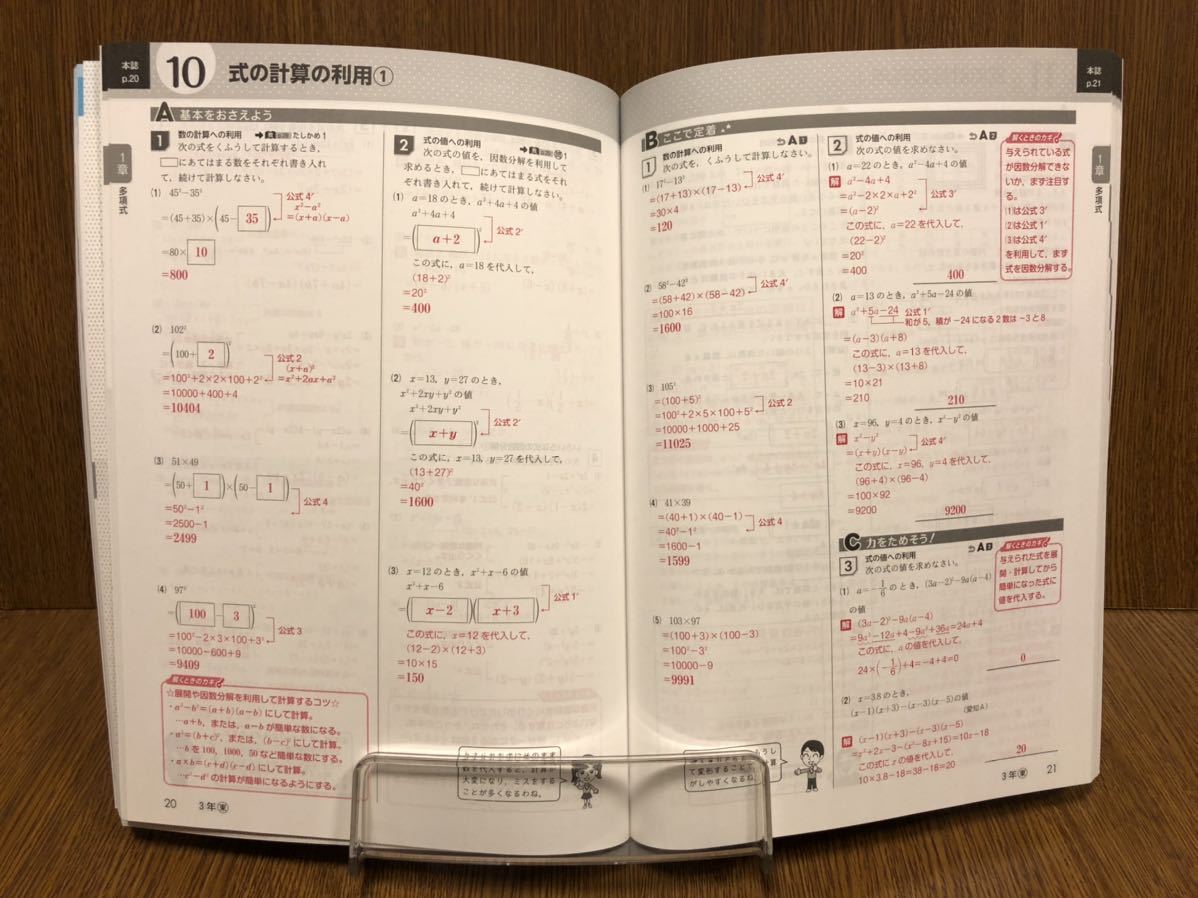 本誌
p.20
10
式の計算の利用①
1章
多項式
A 基本をおさえよう
1 数の計算への利用 たしかめ1
次の式をくふうして計算するとき,
□にあてはまる数をそれぞれ書き入れ
て, 続けて計算しなさい。
(1) 45²-35²
公式4′
x²-a²
=(x+a)(x-a)
=(45+35)×(45-35)
=80×10
=800
(2) 102²
=(100+2)²
公式2
(x+a)²
=x²+2ax+a²
=100²+2×2×100+2²
=10000+400+4
=10404
(3) 51×49
=(50+1)×(50-1)
公式4
=50²-1²
=2500-1
=2499
(4) 97²
=(100-3)²
公式3
=100²-2×3×100+3²
=10000-600+9
=9409
解くときのカギ
☆展開や因数分解を利用して計算するコツ☆
・a²-b²=(a+b)(a-b)にして計算。
…a+b, または, a-bが簡単な数になる。
・a²=(b+c)², または, (b-c)²にして計算。
…bを100, 1000, 50など簡単な数にする。
・a×b=(c+d)(c-d)にして計算。
…c²-d²の計算が簡単になるようにする。
20 3年東
2 式の値への利用
次の式の値を, 因数分解を利用して
求めるとき, □にあてはまる式をそ
れぞれ書き入れて, 続けて計算しなさい。
(1) a=18のとき, a²+4a+4の値
a²+4a+4
=(a+2)²
公式2′
この式に, a=18を代入して,
(18+2)²
=20²
=400
(2) x=13, y=27のとき,
x²+2xy+y²の値
x²+2xy+y²
=(x+y)²
公式2′
この式に, x=13, y=27を代入して,
(13+27)²
=40²
=1600
(3) x=12のとき, x²+x-6の値
x²+x-6
=(x-2)(x+3)
公式1′
この式に, x=12を代入して,
(12-2)×(12+3)
=10×15
=150
を代入すると, 計算が
大変になり, ミスをする
ことが多くなるわね。
B ここで定着
1 数の計算への利用 A1
次の式を, くふうして計算しなさい。
(1) 17²-13²
=(17+13)×(17-13)
公式4′
=30×4
=120
(2) 58²-42²
=(58+42)×(58-42)
公式4′
=100×16
=1600
(3) 105²
=(100+5)²
=100²+2×5×100+5²
公式2
=10000+1000+25
=11025
(4) 41×39
=(40+1)×(40-1)
=40²-1²
公式4
=1600-1
=1599
(5) 103×97
=(100+3)×(100-3)
=100²-3²
=10000-9
=9991
て変形することで
がしやすくなるね。
2 式の値への利用 A2
次の式の値を求めなさい。
(1) a=22のとき, a²-4a+4の値
解 a²-4a+4
=a²-2×2×a+2²
公式3′
=(a-2)²
この式に, a=22を代入して,
(22-2)²
=20²
=400
400
(2) a=13のとき, a²+5a-24の値
解 a²+5a-24 公式1′
和が5, 積が-24になる2数は-3と8
=(a-3)(a+8)
この式に, a=13を代入して,
(13-3)×(13+8)
=10×21
=210
210
(3) x=96, y=4のとき, x²-y²の値
解 x²-y²
公式4′
=(x+y)(x-y)
この式に, x=96, y=4を代入して,
(96+4)×(96-4)
=100×92
=9200
9200
解くときのカギ
与えられている式
が因数分解できな
いか, まず注目す
る。
(1)は公式3′
(2)は公式1′
(3)は公式4′
を利用して, まず
式を因数分解する。
C 力をためそう!
3 式の値への利用 A2
次の式の値を求めなさい。
(1) a=-1/6のとき, (3a-2)²-9a(a-4)
の値
解 (3a-2)²-9a(a-4)
=9a²-12a+4-9a²+36a=24a+4
この式に, aの値を代入して,
24×(-1/6)+4=-4+4=0
0
(2) x=3.8のとき,
(x-1)(x+3)-(x-3)(x-5)の値
(愛知A)
解 (x-1)(x+3)-(x-3)(x-5)
=x²+2x-3-(x²-8x+15)=10x-18
この式にxの値を代入して,
10×3.8-18=38-18=20
20
解くときのカギ
与えられた式を展
開・計算してから
簡単になった式に
値を代入する。
本誌
p.21
1章
多項式
3年東 21